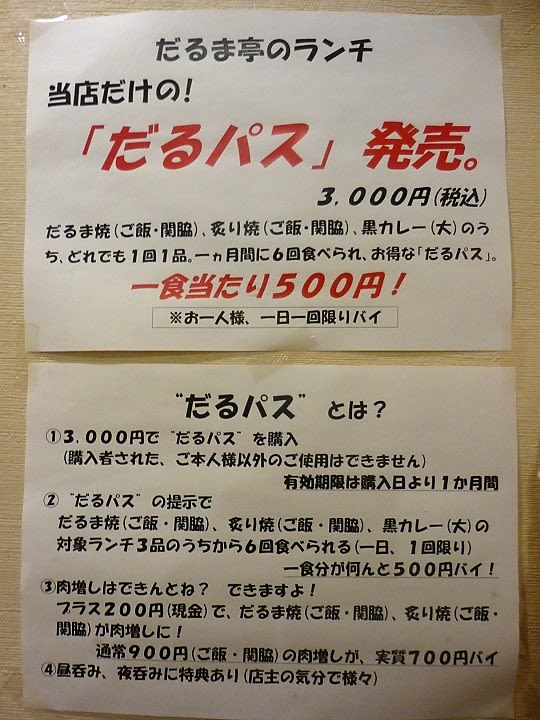 だるま亭のランチ
当店だけの!
「だるパス」発売。
3,000円(税込)
だるま焼(ご飯・関脇)、炙り焼(ご飯・関脇)、黒カレー(大)のう
ち、どれでも1回1品。一ヵ月間に6回食べられ、お得な「だるパス」。
一食当たり500円!
※お一人様、一日一回限りバイ
"だるパス" とは?
①3,000円で"だるパス"を購入
(購入者された、ご本人様以外のご使用はできません)
有効期限は購入日より1か月間
②"だるパス"の提示で
だるま焼(ご飯・関脇)、炙り焼(ご飯・関脇)、黒カレー(大)の
対象ランチ3品のうちから6回食べられる(一日、1回限り)
一食分が何んと500円バイ!
③肉増しはできんとね? できますよ!
プラス200円(現金)で、だるま焼(ご飯・関脇)、炙り焼(ご飯・
関脇)が肉増しに!
通常900円(ご飯・関脇)の肉増しが、実質700円バイ
④昼呑み、夜呑みに特典あり(店主の気分で様々)